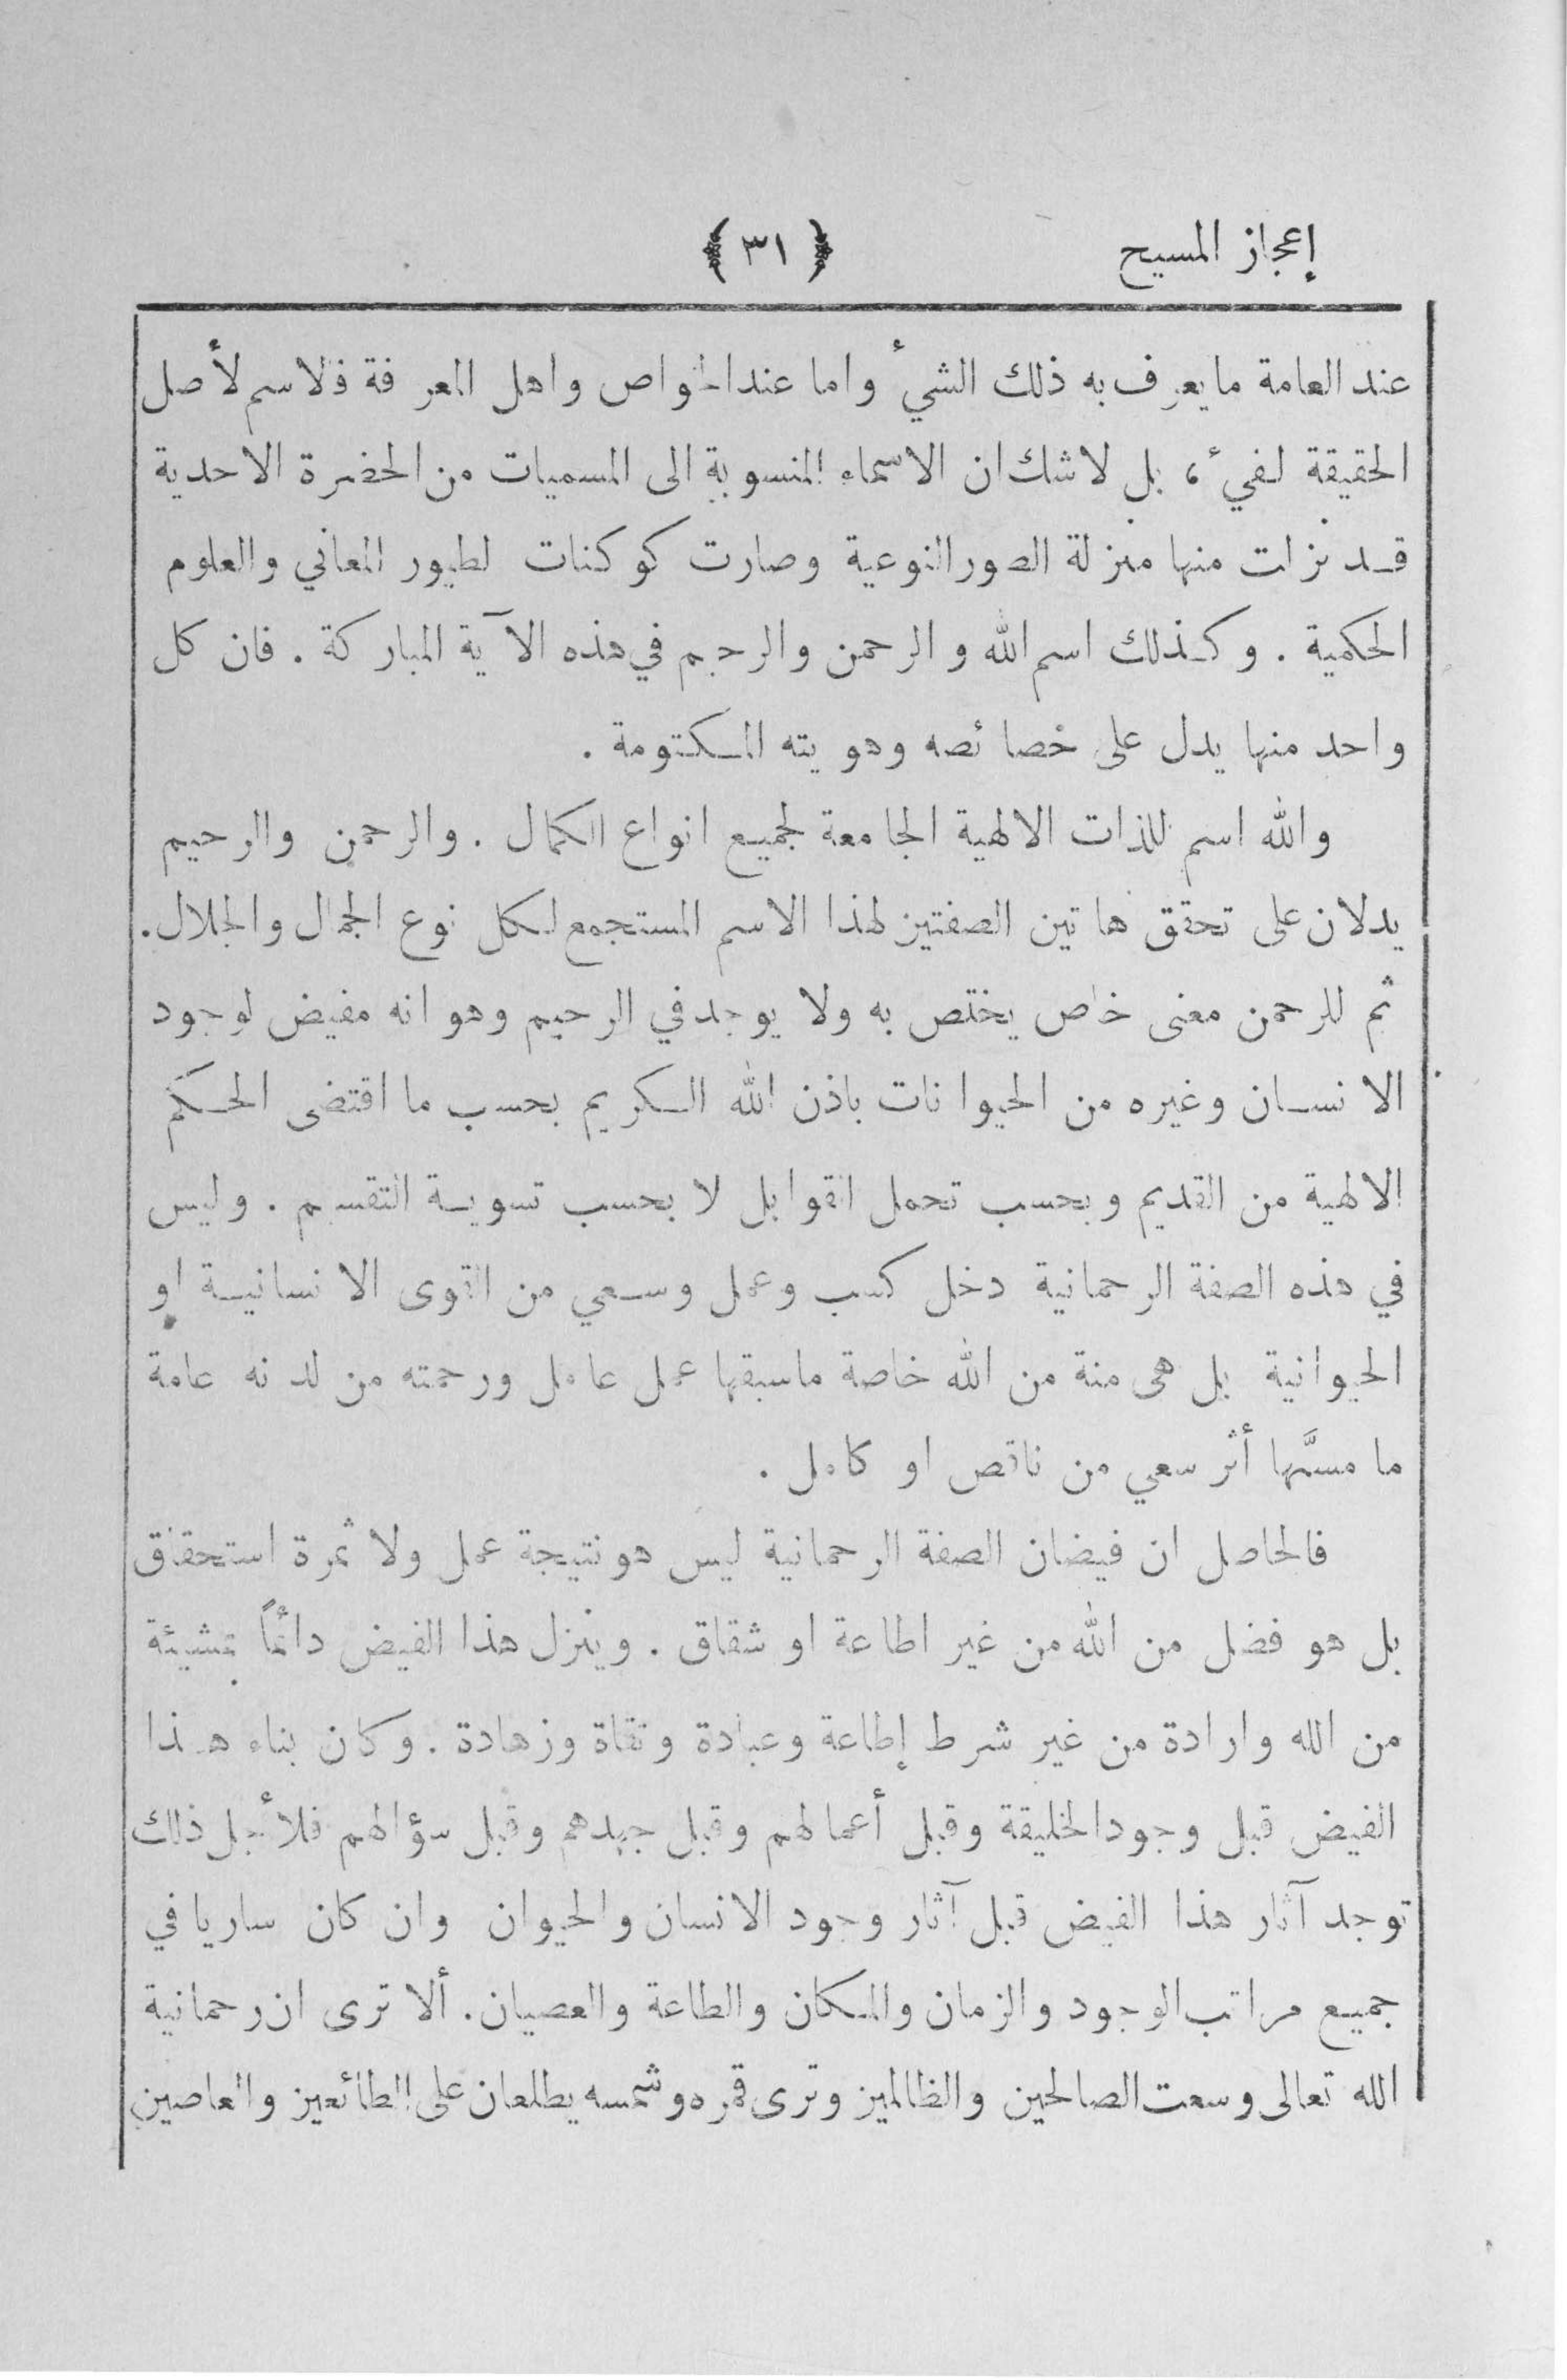 إعجاز المسيح ﴿ ٣١ ﴾
عند العامة ما يعرف به ذلك الشئ واما عند الخواص واهل المعرفة فالاسم لأصل
الحقيقة لفئ ، بل لا شك ان الاسماء المنسوبة الى المسميات من الحضرة الاحدية
قد نزلت منها منزلة الصور النوعية وصارت كوكنات لطيور المعاني والعلوم
الحكمية . وكذلك اسم الله والرحمن والرحيم في هذه الآية المباركة . فان كل
واحد منها يدل على خصائصه وهويته المكتومة .
والله اسم للذات الالهية الجامعة لجميع انواع الكمال . والرحمن والرحيم
يدلان على تحقق هاتين الصفتين لهذا الاسم المستجمع لكل نوع الجمال والجلال .
ثم للرحمن معنى خاص يختص به ولا يوجد في الرحيم وهو انه مفيض لوجود
الانسان وغيره من الحيوانات باذن الله الكريم بحسب ما اقتضى الحكم
الالهية من القديم وبحسب تحمل القوابل لا بحسب تسوية التقسيم . وليس
في هذه الصفة الرحمانية دخل كسب وعمل وسعي من القوى الانسانية او
الحيوانية بل هى منة من الله خاصة ماسبقها عمل عامل ورحمته من لدنه عامة
ما مسَّها أثر سعي من ناقص او كامل .
فالحاصل ان فيضان الصفة الرحمانية ليس هو نتيجة عمل ولا ثمرة استحقاق
بل هو فضل من الله من غير اطاعة او شقاق . وينزل هذا الفيض دائماً بمشيئة
من الله وارادة من غير شرط إطاعة وعبادة وتقاة وزهادة . وكان بناء هذا
الفيض قبل وجود الخليقة وقبل أعمالهم وقبل جهدهم وقبل سؤالهم فلأجل ذلك
توجد آثار هذا الفيض قبل آثار وجود الانسان والحيوان وان كان ساريا في
جميع مراتب الوجود والزمان والمكان والطاعة والعصيان . ألا ترى ان رحمانية
الله تعالى وسعت الصالحين والظالمين وترى قمره وشمسه يطلعان على الطائعين والعاصين